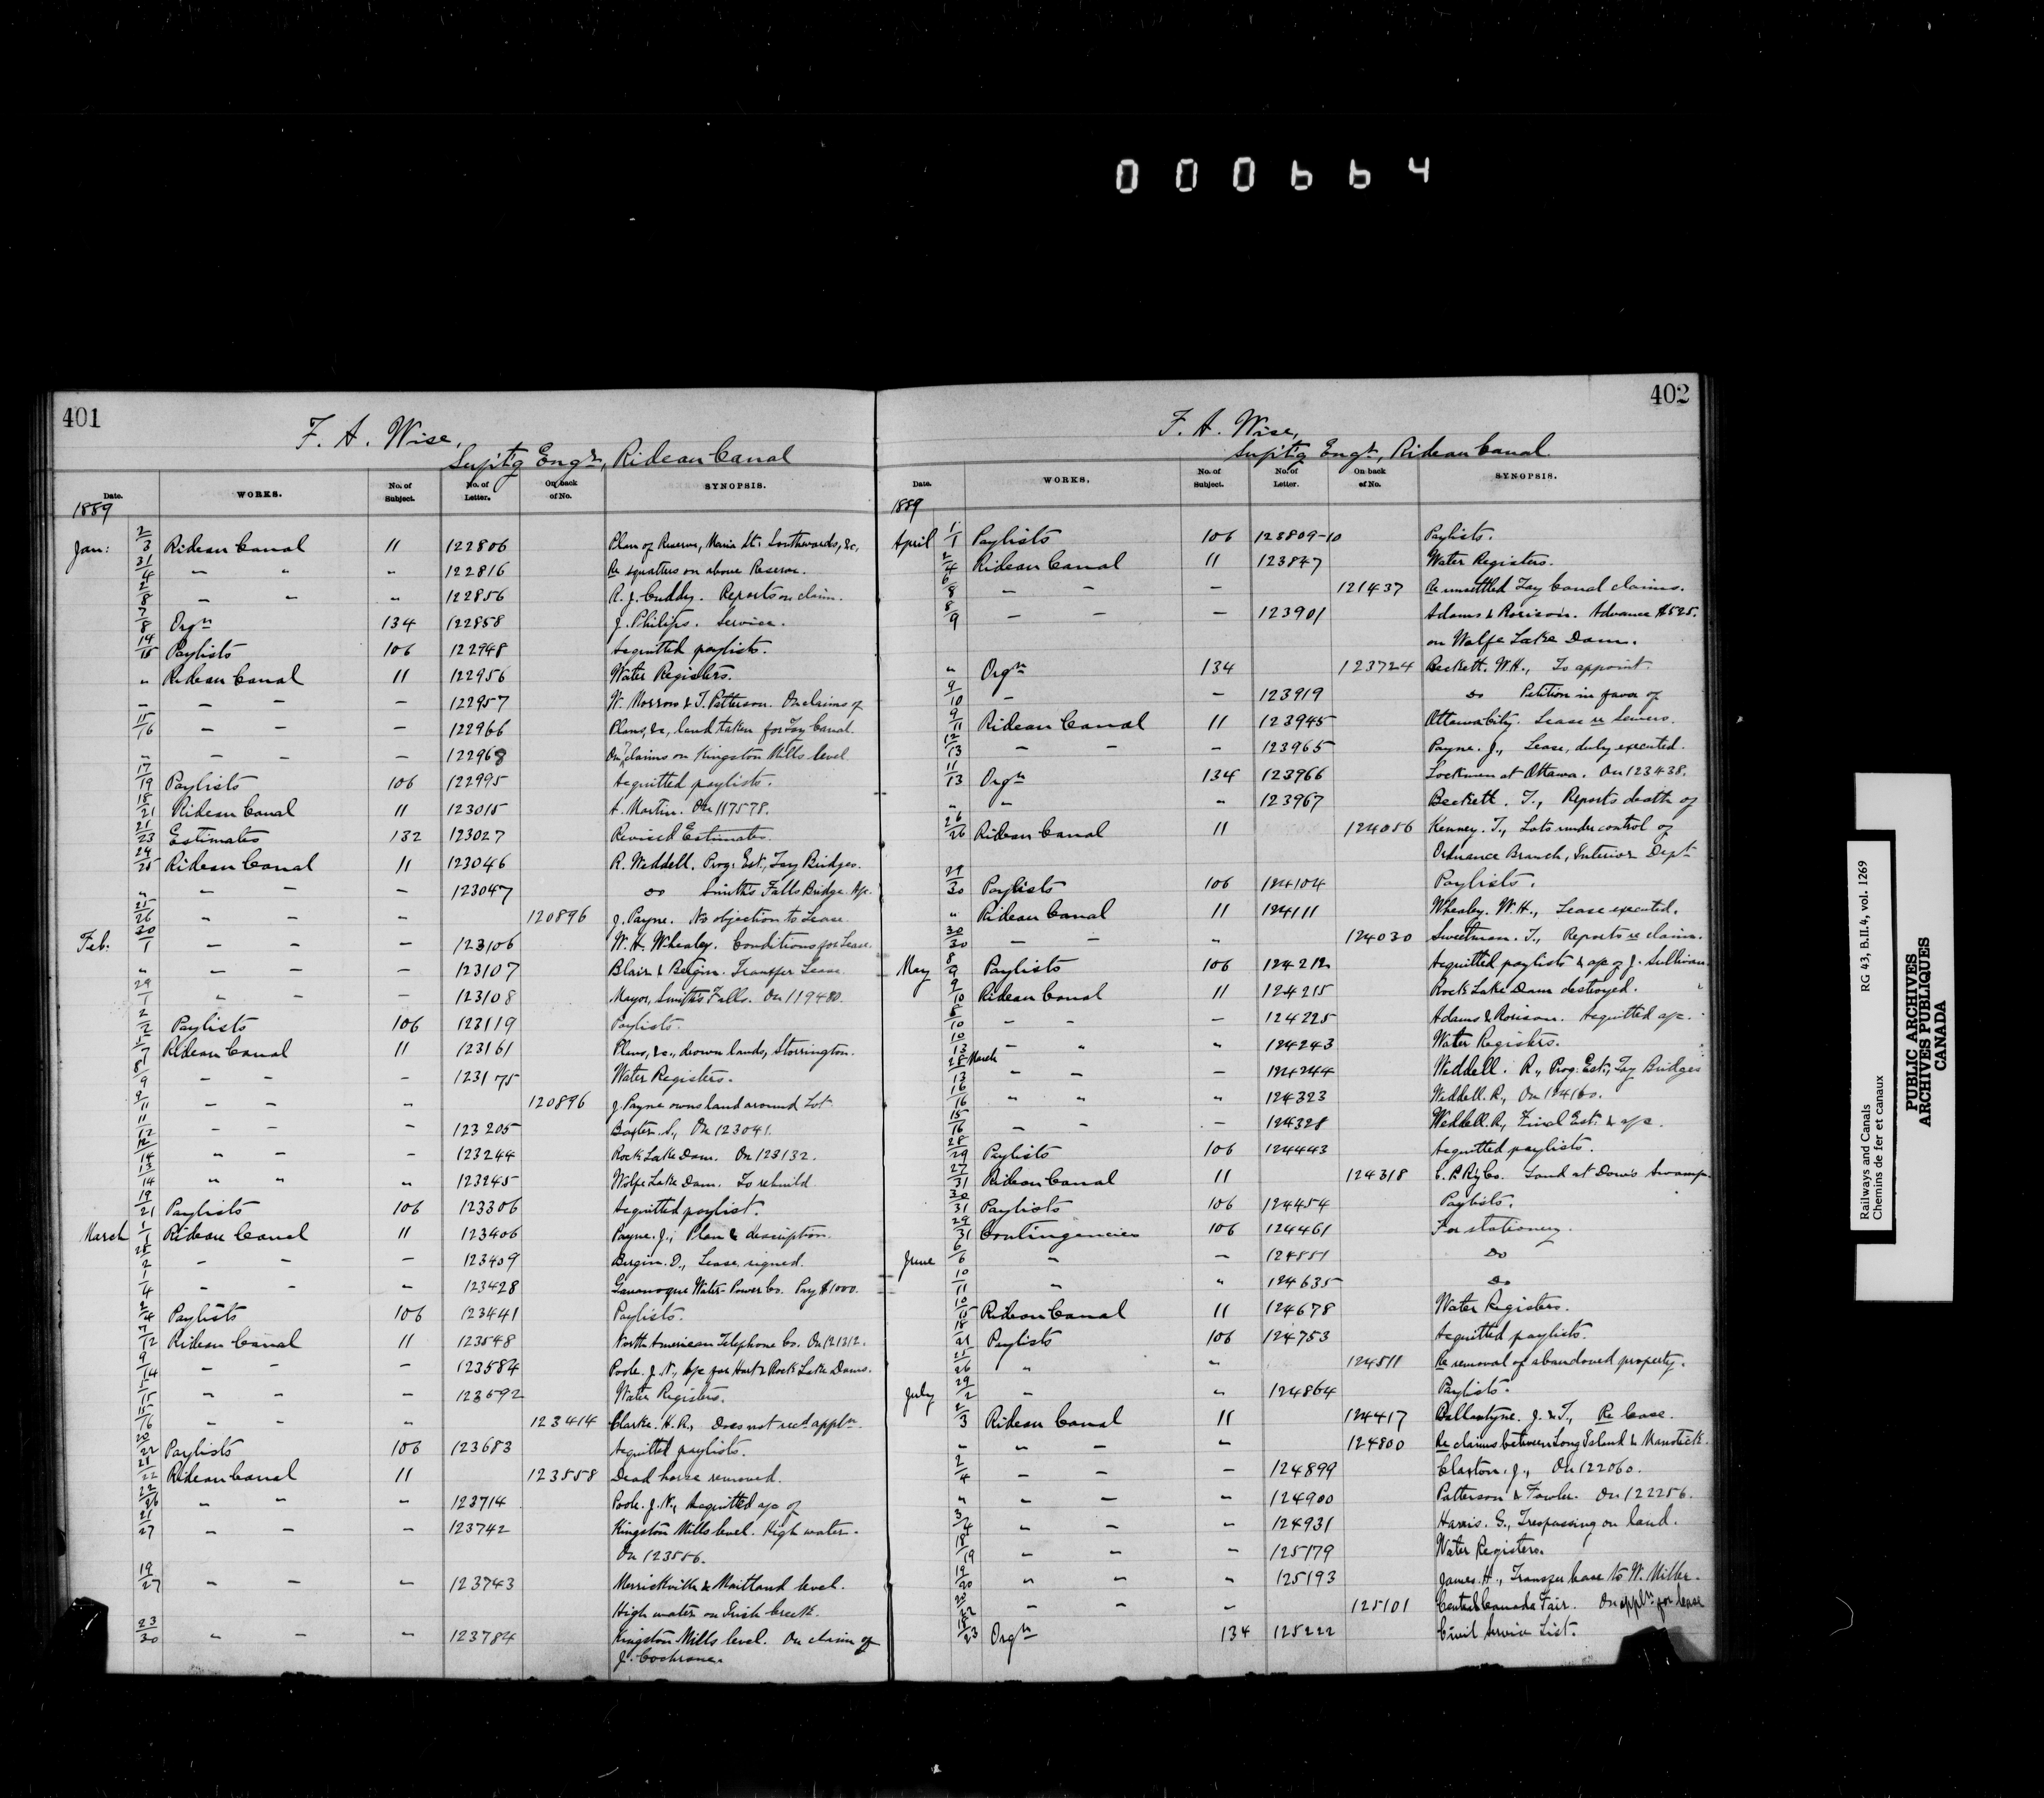 000664
401
F. A. Wise,
Supt'g Engr, Rideau Canal
Date. WORKS. No. of Subject. No. of Letter. On back of No. SYNOPSIS.
1889
Jan: 2/3 Rideau Canal 11 122806 Plan of Reserve, Maria St. Southwards, &c,
31/4 " " " 122816 Re squatters on above Reserve.
2/8 " " " 122856 R. J. Cuddy. Reports on claim.
7/8 Orgn 134 122858 J. Philips. Service.
14/15 Paylists 106 122948 Acquitted paylists.
" Rideau Canal 11 122956 Water Registers.
" " " " 122957 W. Morrow & T. Patterson. On claims of
15/16 " " " 122966 Plans, &c, land taken for Tay Canal.
" " " " 122968 On claims on Kingston Mills level
17/19 Paylists 106 122995 Acquitted paylists.
18/21 Rideau Canal 11 123015 A. Martin. On 117578.
21/23 Estimates 132 123027 Revised Estimates
24/25 Rideau Canal 11 123046 R. Weddell. Prog. Est., Tay Bridges.
" " " " 123047 Do Smiths Falls Bridge. A/c.
25/26 " " " 120896 J. Payne. No objection to Lease.
Feb. 30/1 " " " 123106 W. H. Whealey. Conditions for Lease.
" " " " 123107 Blair & Bergin. Transfer Lease
29/1 " " " 123108 Mayor, Smiths Falls. On 119480.
2/2 Paylists 106 123119 Paylists.
5/7 Rideau Canal 11 123161 Plans, &c., drown lands, Storrington.
8/9 " " " 123175 Water Registers.
9/11 " " " 120896 J. Payne owns land around Lot
11/12 " " " 123205 Baxter. S., On 123041.
12/14 " " " 123244 Rock Lake Dam. On 123132.
13/14 " " " 123245 Wolfe Lake Dam. To rebuild
19/21 Paylists 106 123306 Acquitted paylist.
March 1/1 Rideau Canal 11 123406 Payne. J., Plan & description.
28/2 " " " 123409 Bergin. D., Lease signed.
1/4 " " " 123428 Gananoque Water-Power Co. Pay $1000.
2/4 Paylists 106 123441 Paylists.
7/12 Rideau Canal 11 123548 North American Telephone Co. On 121312.
9/14 " " " 123584 Poole. J. N., A/c for Hart & Rock Lake Dams.
5/15 " " " 123592 Water Registers.
15/16 " " " 123414 Clarke. H. R., Does not recd appln.
20/22 Paylists 106 123683 Acquitted paylists.
21/22 Rideau Canal 11 123558 Dead horse removed.
22/26 " " " 123714 Poole. J. N., Acquitted a/c of
21/27 " " " 123742 Kingston Mills level. High water.
On 123556.
19/27 " " " 123743 Merrickville & Maitland level.
High water on Irish Creek.
23/30 " " " 123784 Kingston Mills level. On claim of
J. Cochrane.
402
F. A. Wise,
Supt'g Engr, Rideau Canal.
Date. WORKS. No. of Subject. No. of Letter. On back of No. SYNOPSIS.
1889
April 1/1 Paylists 106 123809-10 Paylists.
2/4 Rideau Canal 11 123847 Water Registers.
6/8 " " " 121437 Re unsettled Tay Canal claims.
8/9 " " " 123901 Adams & Rorison. Advance $525.
on Wolfe Lake Dam.
" Orgn 134 123724 Beckett. W.H., To appoint.
9/10 " " 123919 Do Petition in favor of
9/11 Rideau Canal 11 123945 Ottawa City. Lease re Sewers.
12/13 " " " 123965 Payne. J., Lease, duly executed.
11/13 Orgn 134 123966 Lockmen at Ottawa. On 123438.
" " " 123967 Beckett. T., Reports death of
26/26 Rideau Canal 11 124056 Kenney. T., Lots under control of
Ordnance Branch, Interior Dept
29/30 Paylists 106 124104 Paylists.
" Rideau Canal 11 124111 Whealey. W. H., Lease executed.
30/30 " " " 124030 Sweetman. T., Reports re claim.
May 8/9 Paylists 106 124212 Acquitted paylists & a/c of J. Sullivan.
9/10 Rideau Canal 11 124215 Rock Lake Dam destroyed.
8/10 " " " 124225 Adams & Rorison. Acquitted a/c.
10/13 " " " 124243 Water Registers.
28 March/13 " " " 124244 Weddell. R., Prog. Est., Tay Bridges
16/16 " " " 124323 Weddell. R., On 124160.
15/16 " " " 124328 Weddell. R., Final Est. & a/c.
28/29 Paylists 106 124443 Acquitted paylists.
27/31 Rideau Canal 11 124318 C. P. Ry Co. Land at Dow's Swamp.
30/31 Paylists 106 124454 Paylists.
29/31 Contingencies 106 124461 For stationery.
June 6/6 " " 124551 Do
10/11 " " 124635 Do
10/15 Rideau Canal 11 124678 Water Registers.
18/21 Paylists 106 124753 Acquitted paylists.
25/26 " " 124511 Re removal of abandoned property.
July 29/2 " " 124864 Paylists.
2/3 Rideau Canal 11 124417 Ballantyne. J. & T., Re lease.
" " " " 124800 Re claims between Long Island & Manotick.
2/4 " " " 124899 Claxton. J., On 122060.
" " " " 124900 Patterson & Fowler. On 122256.
3/4 " " " 124931 Harris. G., Trespassing on land.
18/19 " " " 125179 Water Registers.
19/20 " " " 125193 James. H., Transfer lease to W. Miller.
20/22 " " " 125101 Central Canada Fair. On appln for lease
15/23 Orgn 134 125222 Civil Service List.
Railways and Canals
Chemins de fer et canaux
RG 43, B.II.4, vol. 1269
PUBLIC ARCHIVES
ARCHIVES PUBLIQUES
CANADA